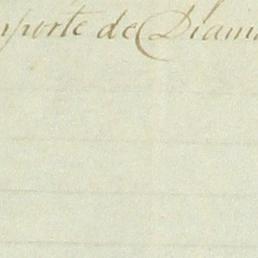 mporte de Diam